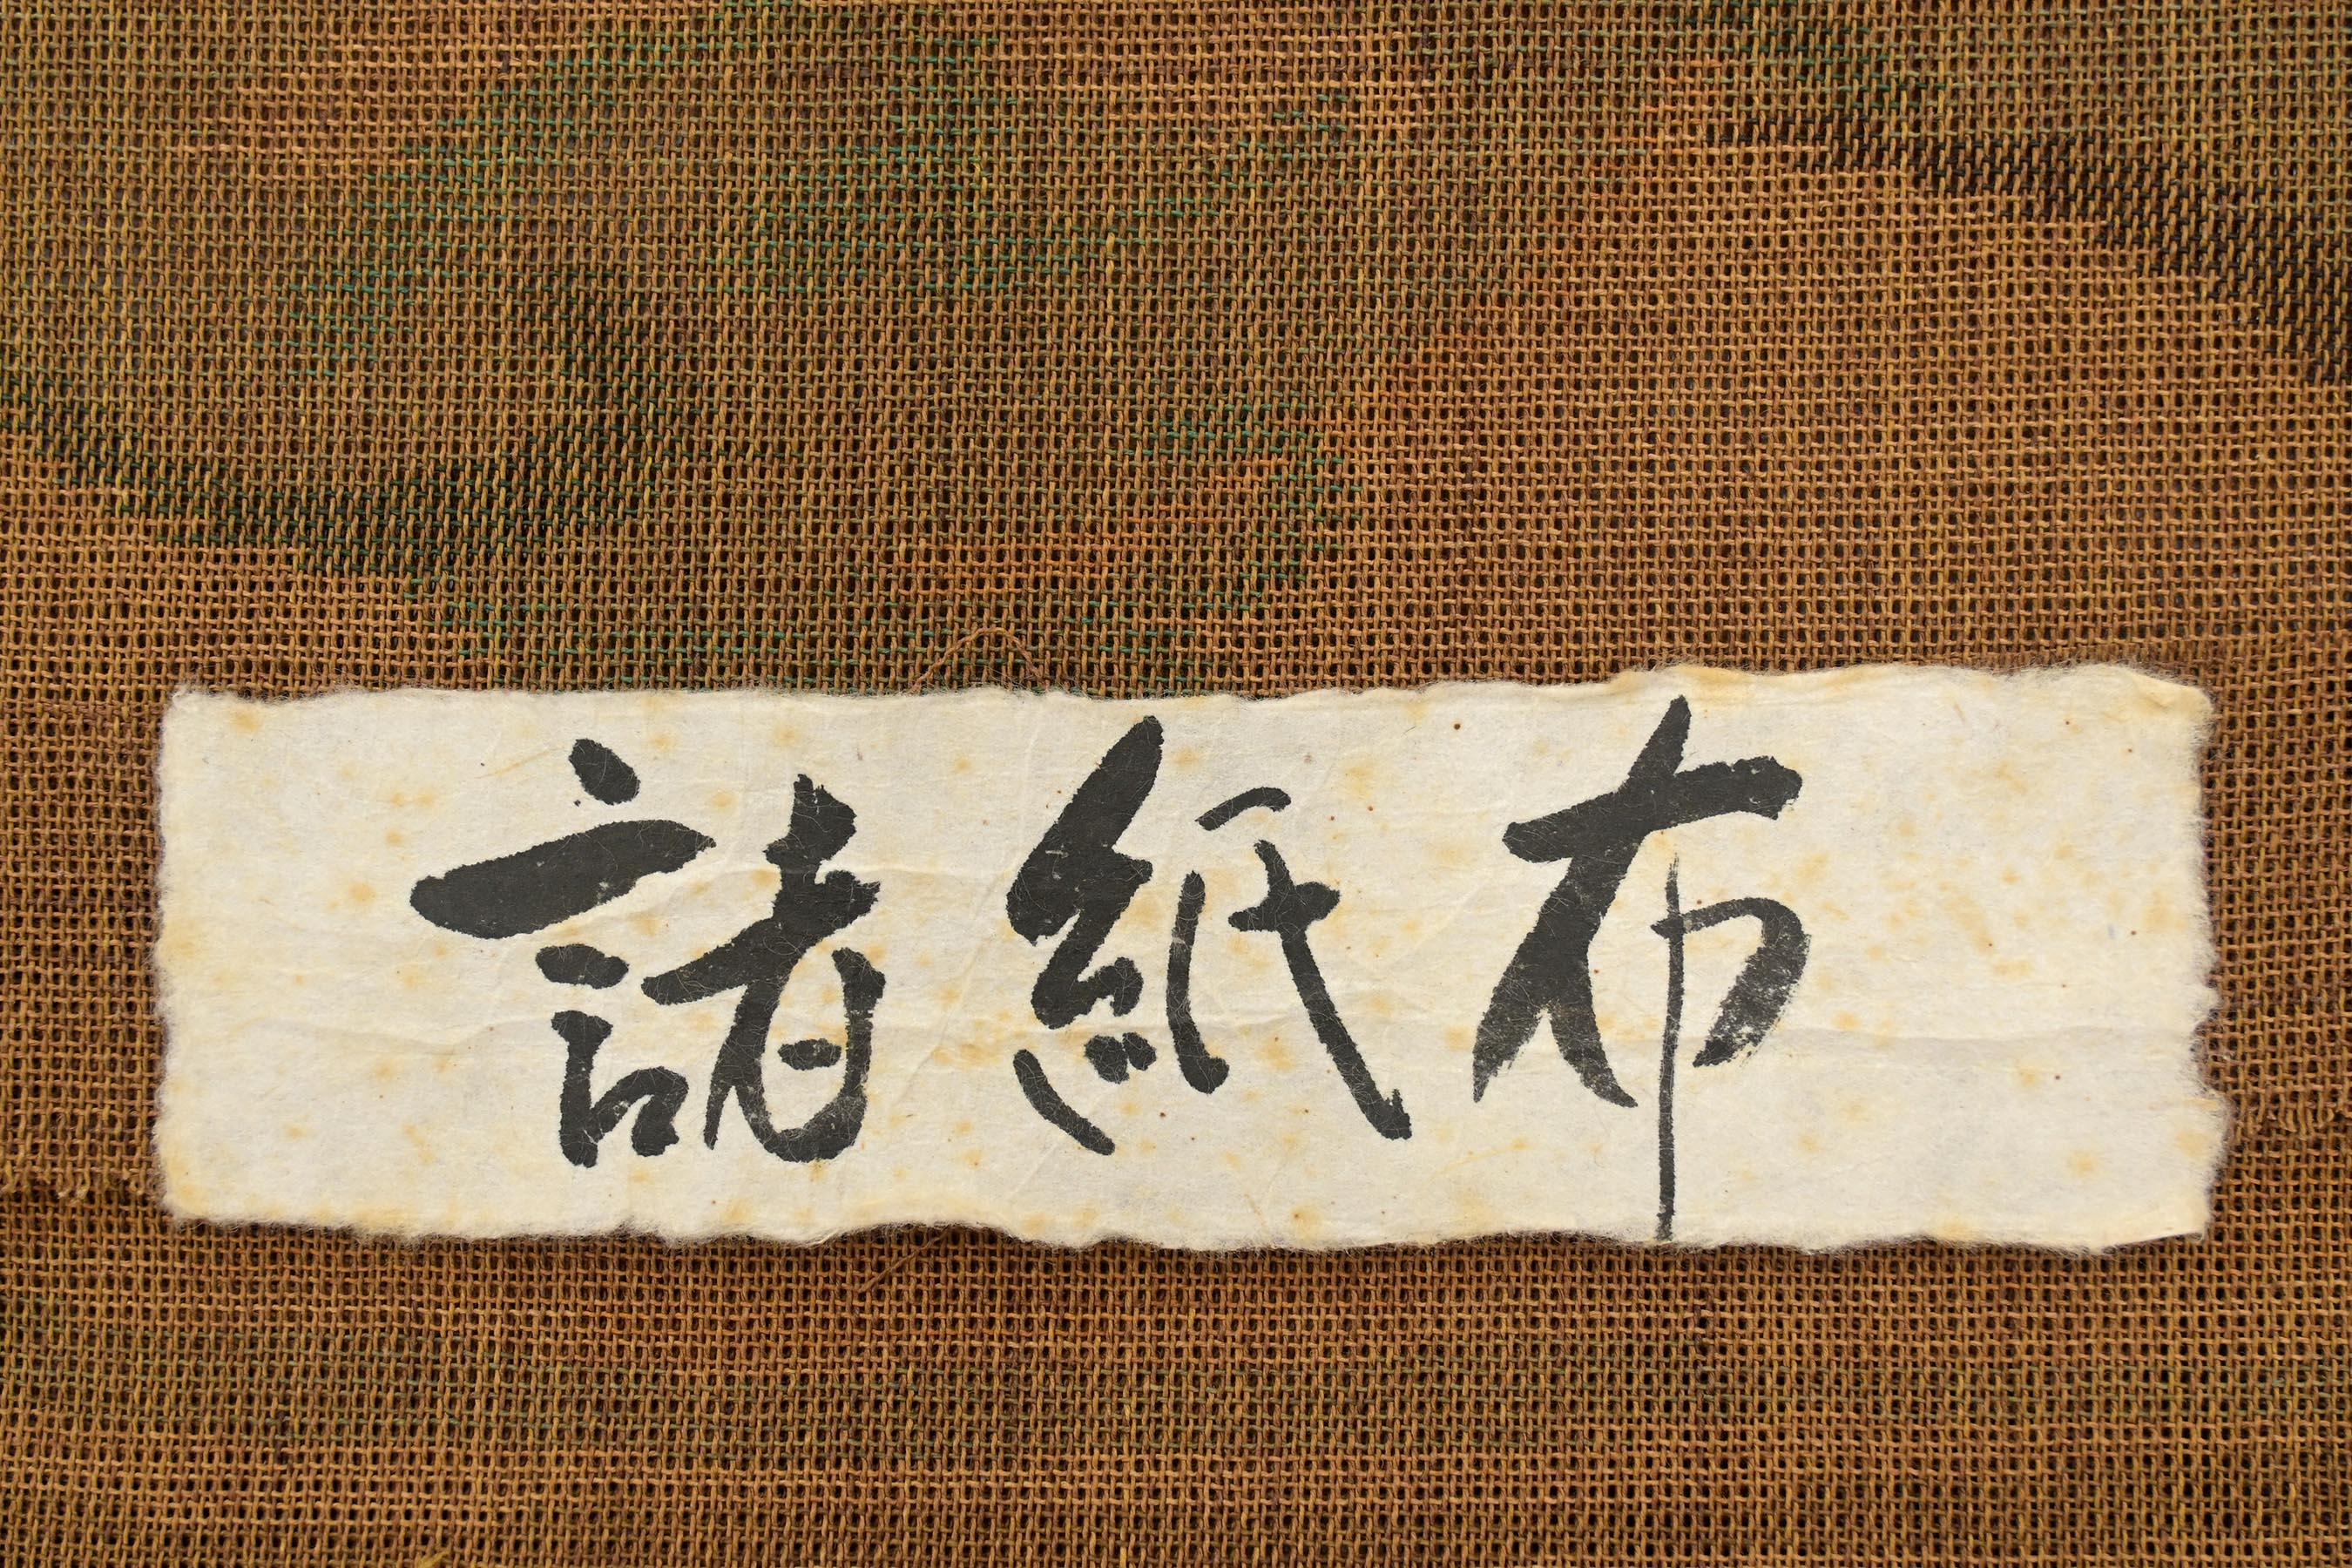 諸紙布